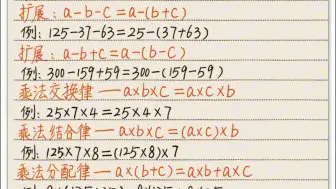 扩展：a-b-c=a-(b+c)
例：125-37-63=25-(37+63)
扩展：a-b+c=a-(b-c)
例：300-159+59=300-(159-59)
乘法交换律——a×b×c=a×c×b
例：25×7×4=25×4×7
乘法结合律——a×b×c=(a×c)×b
例：125×7×8=(125×8)×7
乘法分配律——a×(b+c)=a×b+a×c